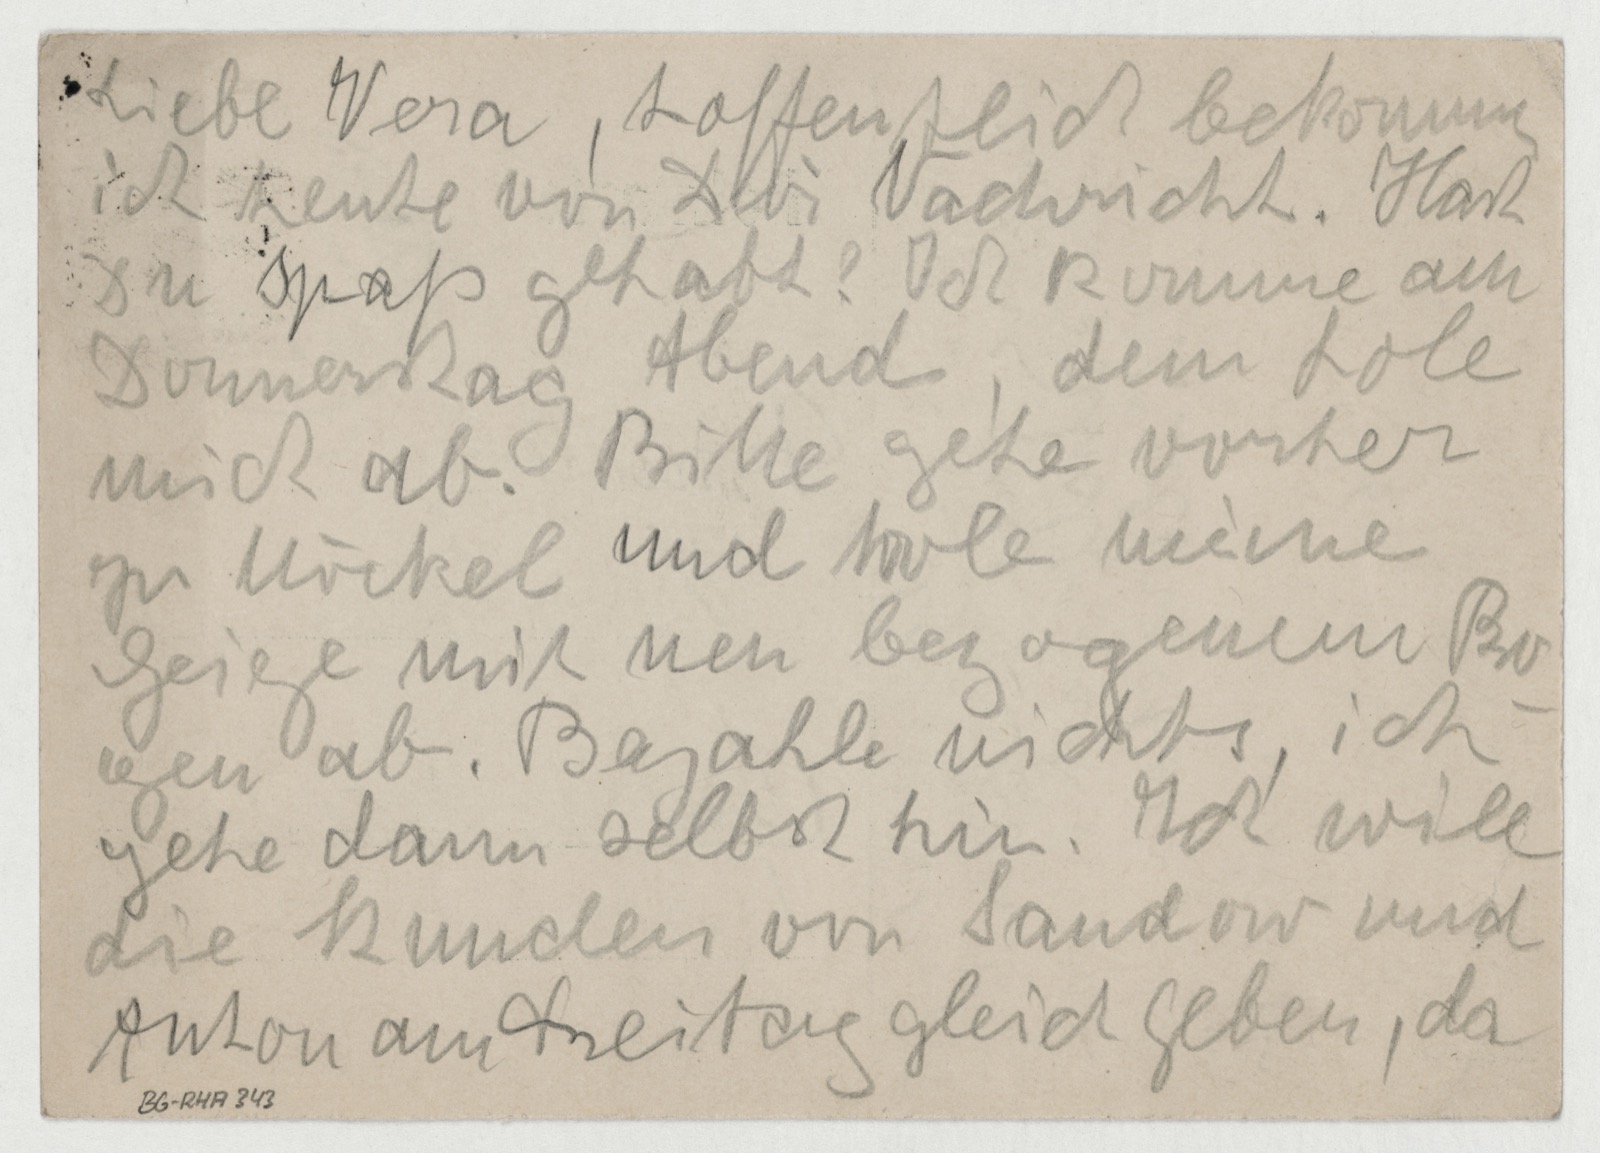 Liebe Vera, hoffentlich bekomme
ich heute von Dir Nachricht. Hast
Du Spaß gehabt? Ich komme am
Donnerstag Abend, dem hole
mich ab. Bitte gehe vorher
zu Möckel und hole meine
Geige mit neu bezogenem Bo-
gen ab. Bezahle nichts, ich
gehe dann selbst hin. Ich will
die Kunden von Sandow und
Anton am Freitag gleich geben, da
BG-RHA 343